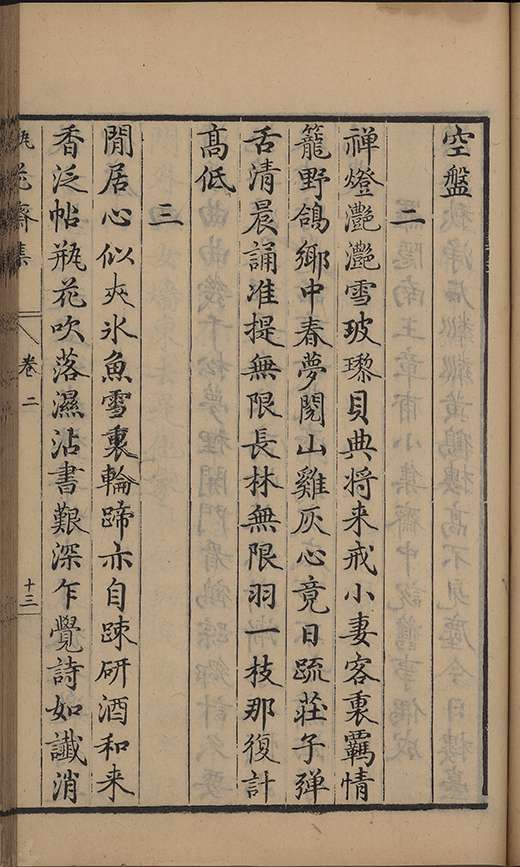 空盤
二
禅燈灔灔雪玻瓈貝典将来戒小妻客裏羈情
籠野鴿鄉中春夢閱山雞灰心竟日䟽莊子彈
舌清晨誦准提無限長林無限羽一枝那復計
髙低
三
閒居心似夾氷魚雪裏輪蹄亦自踈研酒和来
香泛帖瓶花吹落濕沾書艱深乍覺詩如讖消
瓶花齋集
卷二
十三